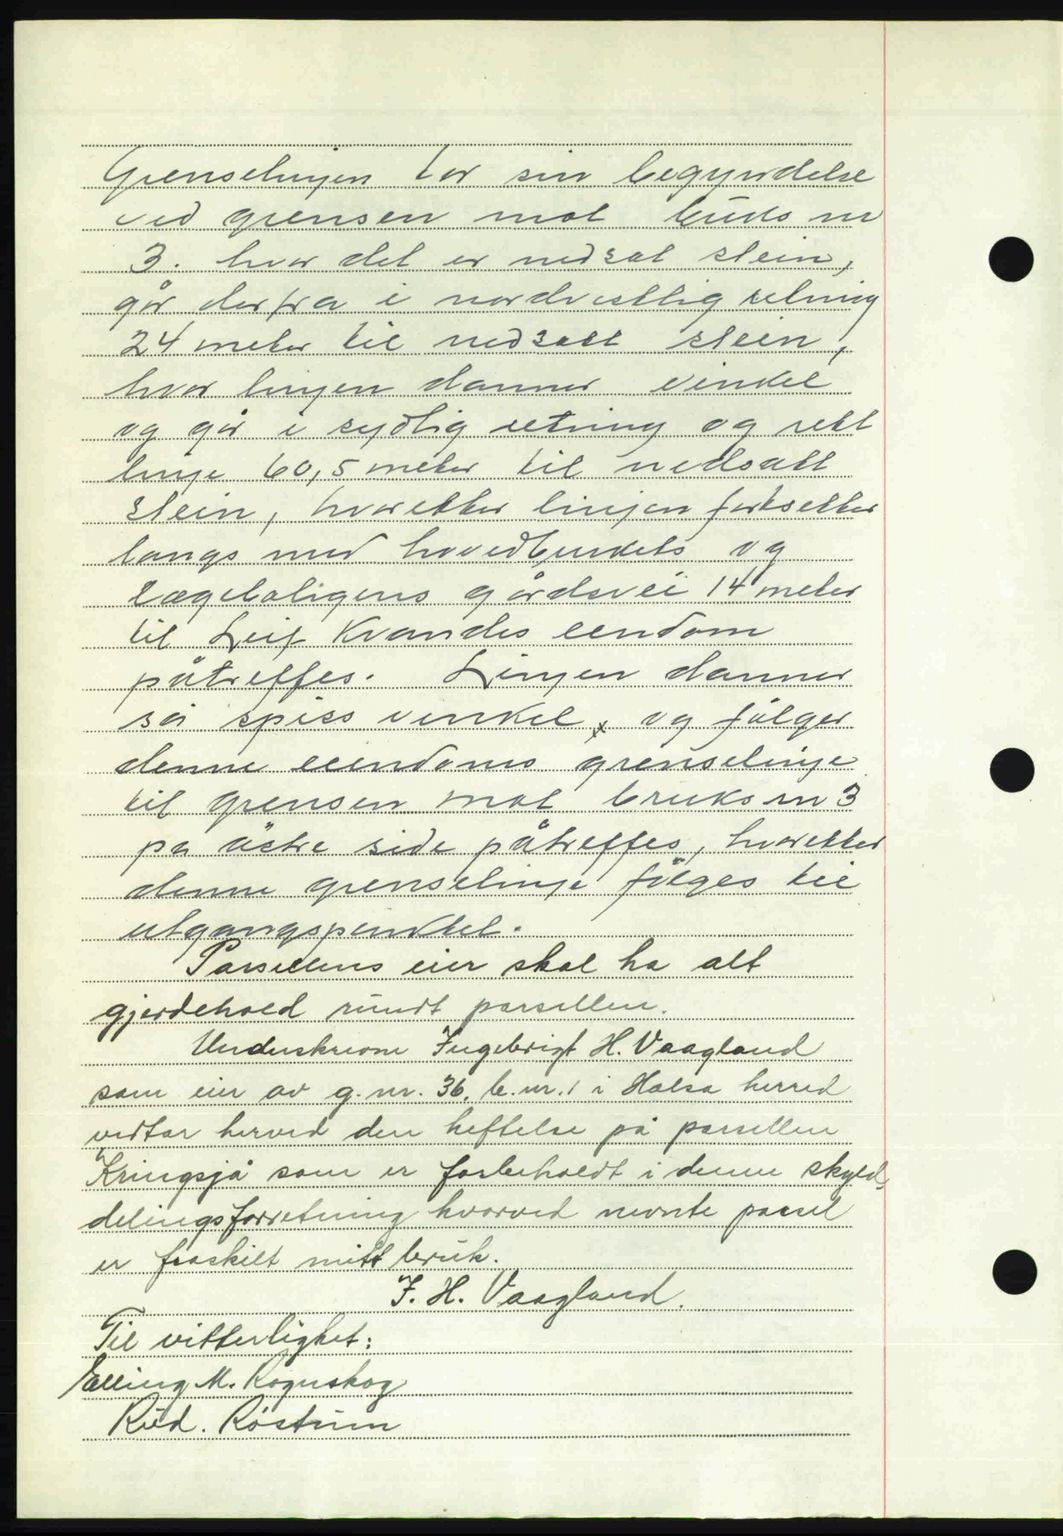 Grenselinjen tar sin begyndelse
ved grensen mot bruks nr
3. hvor det er nedsat stein,
går derfra i nordvestlig retning
24 meter til nedsatt stein,
hvor linjen danner vinkel
og går i sydlig retning og rett
linje 60,5 meter til nedsatt
stein, hvoretter linjen fortsetter
langs med hovedbrukets og
lægeboligens gårdsvei 14 meter
til Leif Kvandes eendom
påtreffes. Linjen danner
så spiss vinkel, og følger
denne eiendoms grenselinje
til grensen mot bruks nr 3
på östre side påtreffes, hvoretter
denne grenselinje følges til
utgangspunktet.
Parsellens eier skal ha alt
gjerdehold rundt parsellen.
Underskrevne Ingebrigt H. Vaagland
som eier av g.nr. 36, b.nr. 1 i Halsa herred
vedtar herved den heftelse på parsellen
Kringsjå som er forbeholdt i denne skyld-
delingsforretning hvorved nevnte parsel
er fraskilt mitt bruk.
I. H. Vaagland.
Til vitterlighet:
Elling M. Rognskog
Rud. Röstum